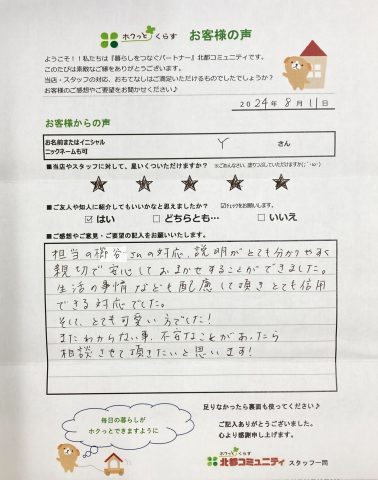 ホクっと くらす お客様の声
ようこそ！！私たちは『暮らしをつなぐパートナー』北都コミュニティです。
このたびは素敵なご縁をありがとうございます。
当店・スタッフの対応、おもてなしはご満足いただけるものでしたでしょうか？
お客様のご感想やご要望をお聞かせください♪
2024年 8月 11日
お客様からの声
お名前またはイニシャル
ニックネームも可
Y さん
■当店やスタッフに対して、星いくつつけますか？ ※ごめんなさい、塗りつぶしていただきますか(;´･ω･)
★ ★ ★ ★ ★
■ご友人や知人に紹介してもいいかなと思えましたか？ ☑チェックをお願いします。
☑ はい □ どちらとも… □ いいえ
■ご感想やご意見・ご要望の記入をお願いいたします。
担当の梛谷さんの対応、説明がとても分かりやすく
親切で安心しておまかせすることができました。
生活の事情なども配慮して頂きとても信用
できる対応でした。
そして、とても可愛い方でした！
またわからない事、不安なことがあったら
相談させて頂きたいと思います！
足りなかったら裏面も使ってください♪
毎日の暮らしが
ホクっとできますように
ご記入ありがとうございました。
心より感謝申し上げます。
ホクっと くらす
北都コミュニティ スタッフ一同